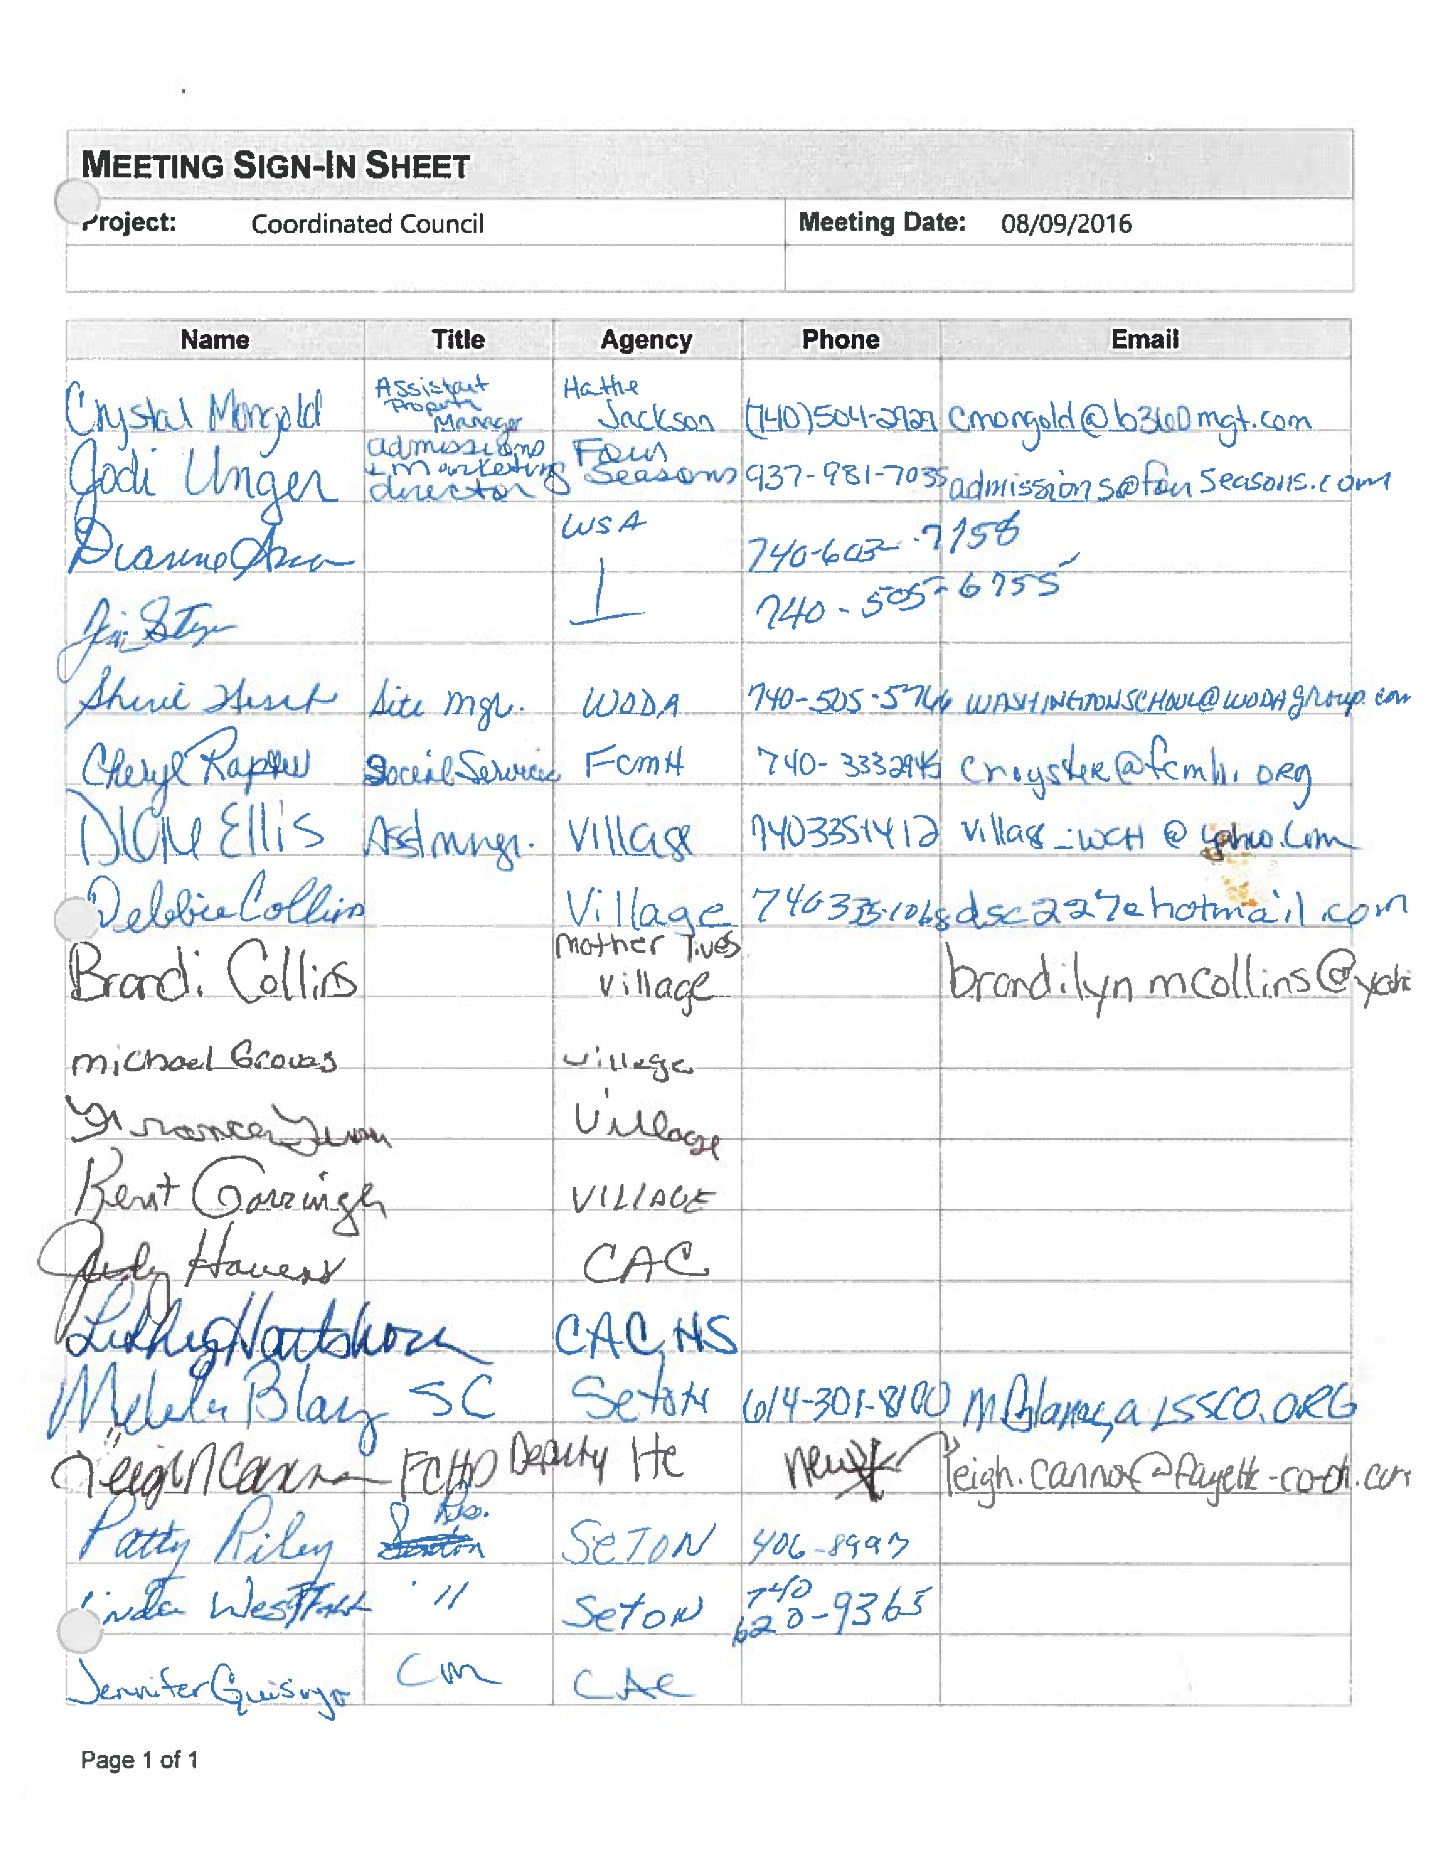 MEETING SIGN-IN SHEET
Project: Coordinated Council Meeting Date: 08/09/2016
Name Title Agency Phone Email
Crystal Mongold Assistant Property Manager Hathe Jackson (740)504-2929 cmongold@b360mgt.com
Jodi Unger admissions + marketing director Four Seasons 937-981-7035 admissions@fourseasons.com
Dianne WSA 740-603-7758
740-505-6755
Sherie Site Mgr. WODA 740-505-5766 WASHINGTONSCHOOL@WODAgroup.com
Cheryl Social Services FCMH 740-3332945 croyster@fcmh.org
Ellis Asst mngr. Village 7403351412 village_wCH@yahoo.com
Debbie Collins Village 740335-1068 dsc227@hotmail.com
Brandi Collins Mother Tives Village brandilynmcollins@yah
michael Groves village
Village
Kent Gorringh VILLAGE
Judy Havens CAC
Hartshorn CAC, HS
SC Seton 614-301-8100
Leigh Cannon FCHD Deputy HC new leigh.cannon@fayette-co-oh.com
Patty Riley Res. SETON 406-8997
Linda Westfall " Seton 740 620-9365
Jennifer Cm CAC
Page 1 of 1